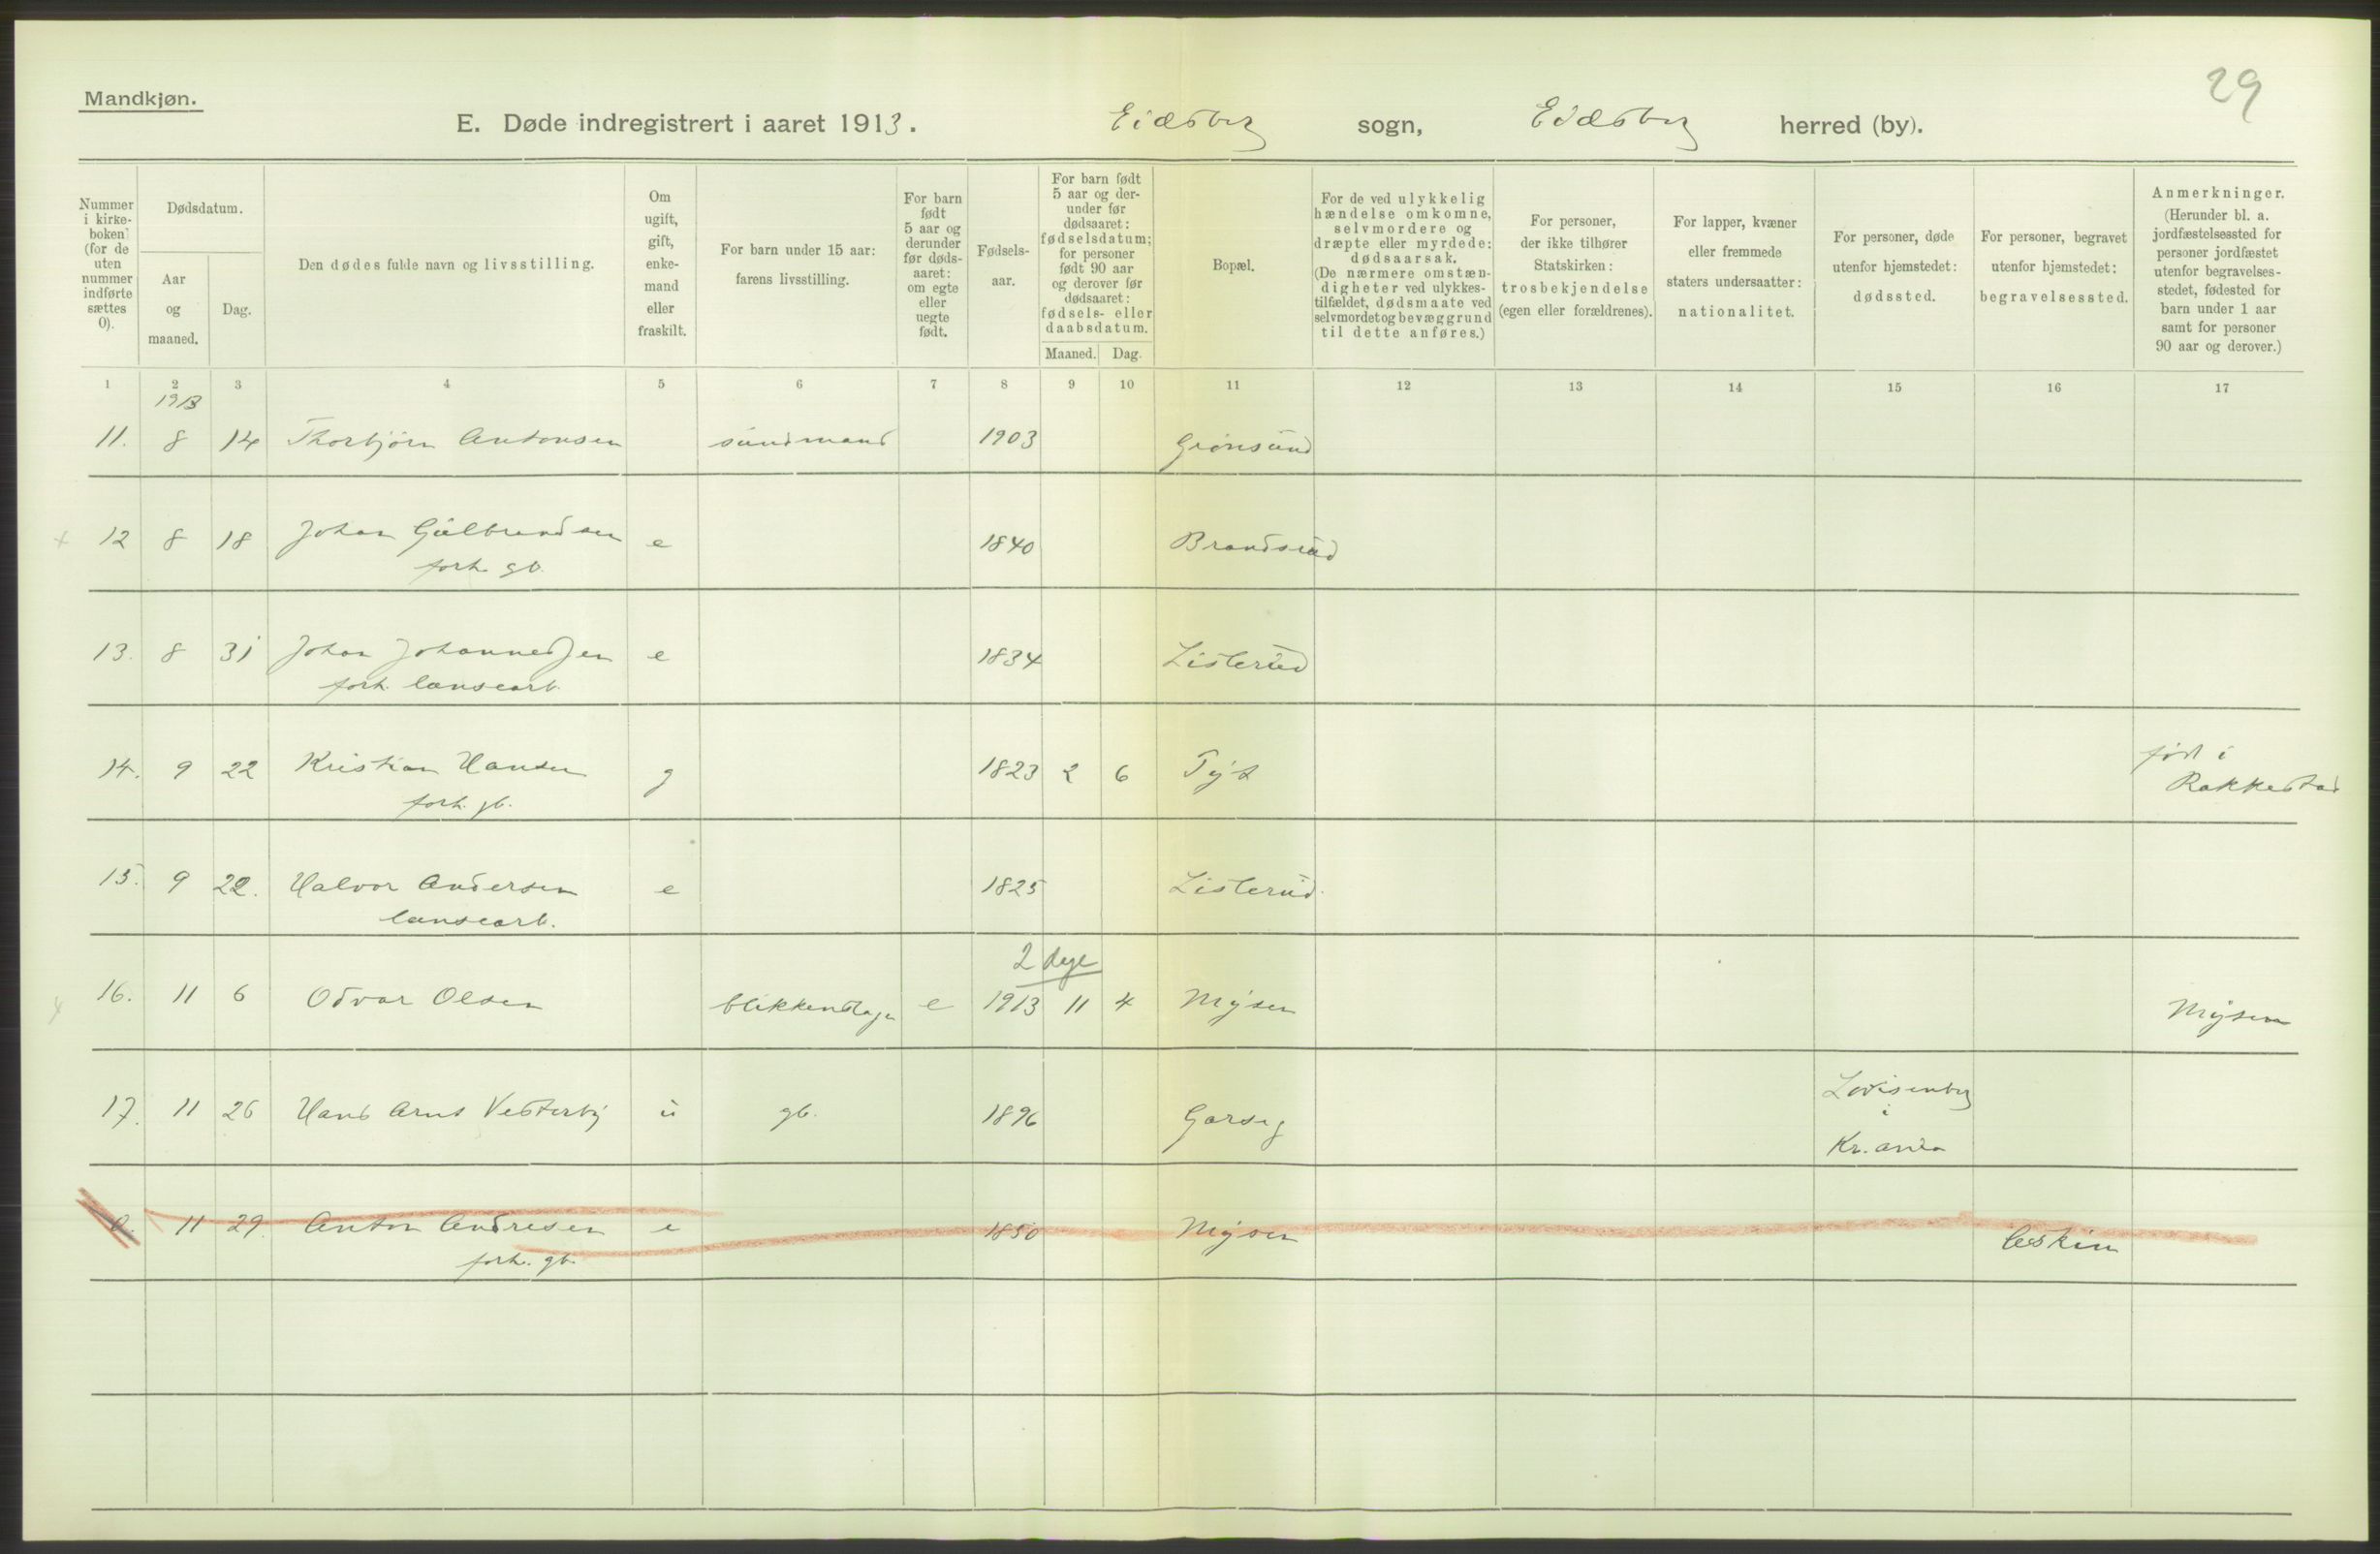 29
Mandkjøn.
E. Døde indregistrert i aaret 1913. Eidsberg sogn, Eidsberg herred (by).
Nummer i kirkeboken (for de uten nummer indførte sættes 0).
Dødsdatum.
Aar og maaned.
Dag.
Den dødes fulde navn og livsstilling.
Om ugift, gift, enkemand eller fraskilt.
For barn under 15 aar: farens livsstilling.
For barn født 5 aar og derunder før dødsaaret: om egte eller uegte født.
Fødselsaar.
For barn født 5 aar og derunder før dødsaaret: fødselsdatum; for personer født 90 aar og derover før dødsaaret: fødsels- eller daabsdatum.
Maaned. Dag.
Bopæl.
For de ved ulykkelig hændelse omkomne, selvmordere og dræpte eller myrdede: dødsaarsak. (De nærmere omstændigheter ved ulykkestilfældet, dødsmaate ved selvmordet og bevæggrund til dette anføres.)
For personer, der ikke tilhører Statskirken: trosbekjendelse (egen eller forældrenes).
For lapper, kvæner eller fremmede staters undersaatter: nationalitet.
For personer, døde utenfor hjemstedet: dødssted.
For personer, begravet utenfor hjemstedet: begravelsessted.
Anmerkninger. (Herunder bl. a. jordfæstelsessted for personer jordfæstet utenfor begravelsesstedet, fødested for barn under 1 aar samt for personer 90 aar og derover.)
1 2 3 4 5 6 7 8 9 10 11 12 13 14 15 16 17
1913
11. 8 14 Thorbjørn Antonsen sundmand 1903 Grønsund
12 8 18 Johan Gulbrandsen e 1840 Brandsrud
forh. gb.
13. 8 31 Johan Johannessen e 1834 Listerud
forh. landearb.
14. 9 22 Kristian Hansen g 1823 2 6 Tyt født i
forh. gb. Rakkestad
15. 9 22. Halvor Andersen e 1825 Listerud.
landearb.
2 dage
16. 11 6 Odvar Olsen blikkenslager e 1913 11 4 Mysen Mysen
17. 11 26 Hans Arnt Vesterby u gb. 1896 Garseg Lovisenberg
i
Kr.ania
0. 11 29. Anton Andresen e 1850 Mysen Askim
forh. gb.